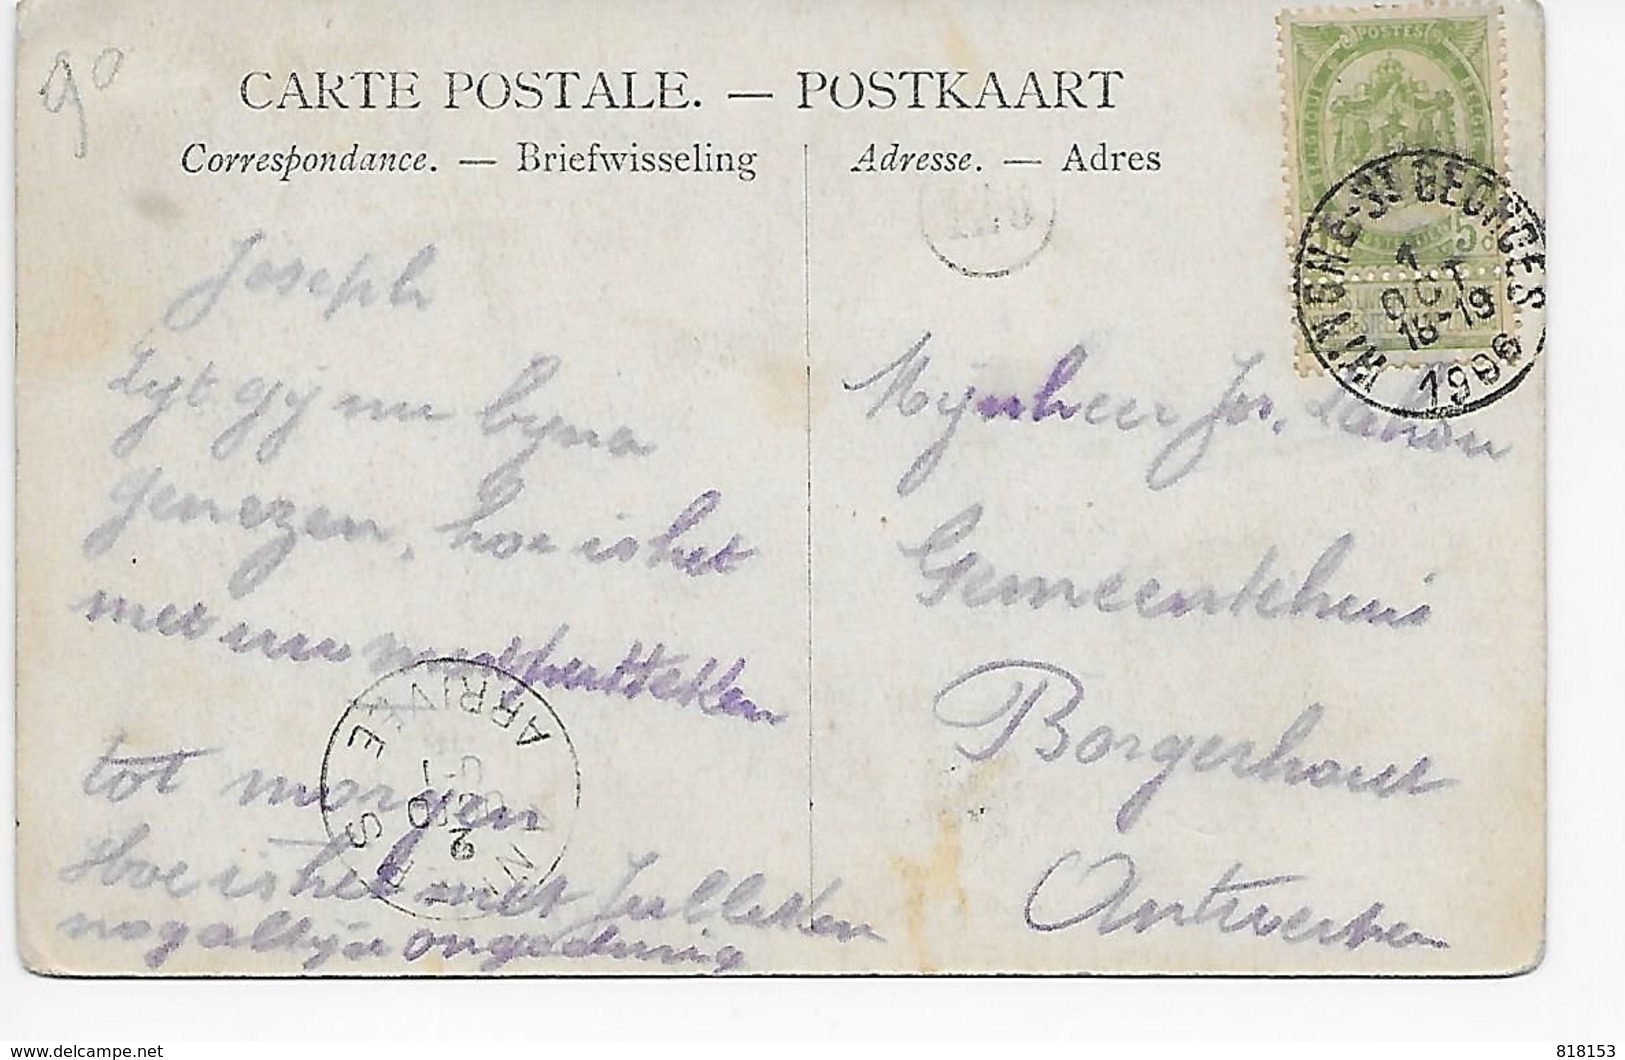 90
CARTE POSTALE. — POSTKAART
Correspondance. — Briefwisseling
Adresse. — Adres
POSTES
BELGIQUE BELGIE
5c
WINGHE-ST GEORGES
1
OCT
18-19
1906
Joseph
Zyt gij nu byna
genezen, hoe is het
met uw
tot morgen
Hoe is het met Julleken
nog altijd ongedurig
Mijnheer Jos.
Gemeentehuis
Borgerhout
Antwerpen
ARRIVEE
ANVERS
2
OCT
www.delcampe.net
818153